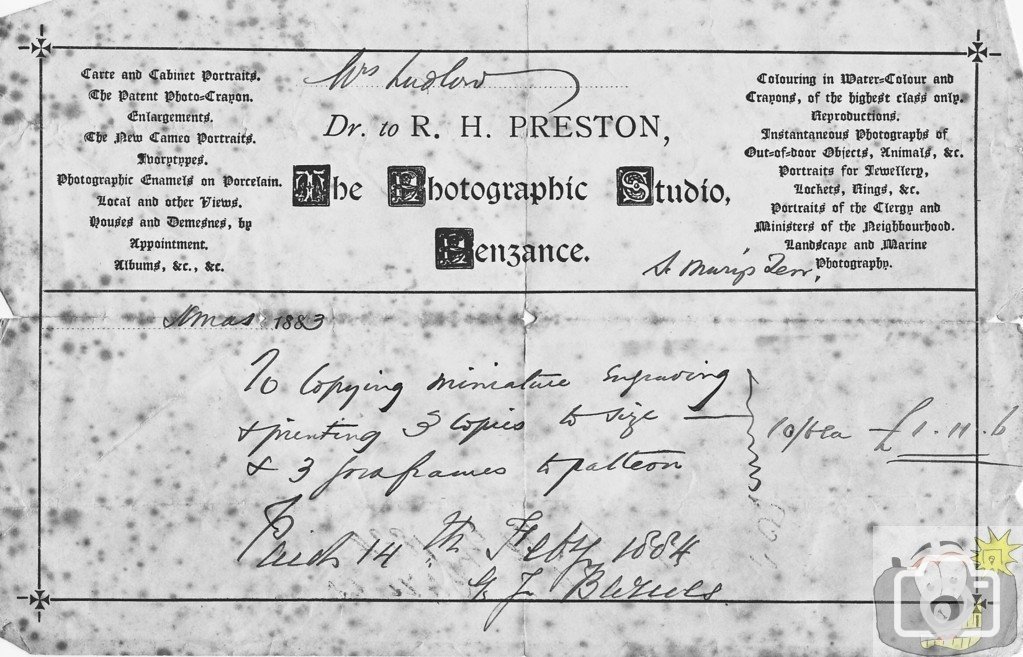 Mrs Ludlow
Dr. to R. H. PRESTON,
The Photographic Studio,
Penzance.
St Mary's Terr,
Carte and Cabinet Portraits.
The Patent Photo=Crayon.
Enlargements.
The New Cameo Portraits.
Ivorytypes.
Photographic Enamels on Porcelain.
Local and other Views.
Houses and Demesnes, by
Appointment.
Albums, &c., &c.
Colouring in Water=Colour and
Crayons, of the highest class only.
Reproductions.
Instantaneous Photographs of
Out=of=door Objects, Animals, &c.
Portraits for Jewellery,
Lockets, Rings, &c.
Portraits of the Clergy and
Ministers of the Neighbourhood.
Landscape and Marine
Photography.
Xmas 1883
To Copying miniature Engraving
& printing 3 Copies to size
& 3 frames to pattern
10/6 ea £1.11.6
Paid 14th Feby 1884